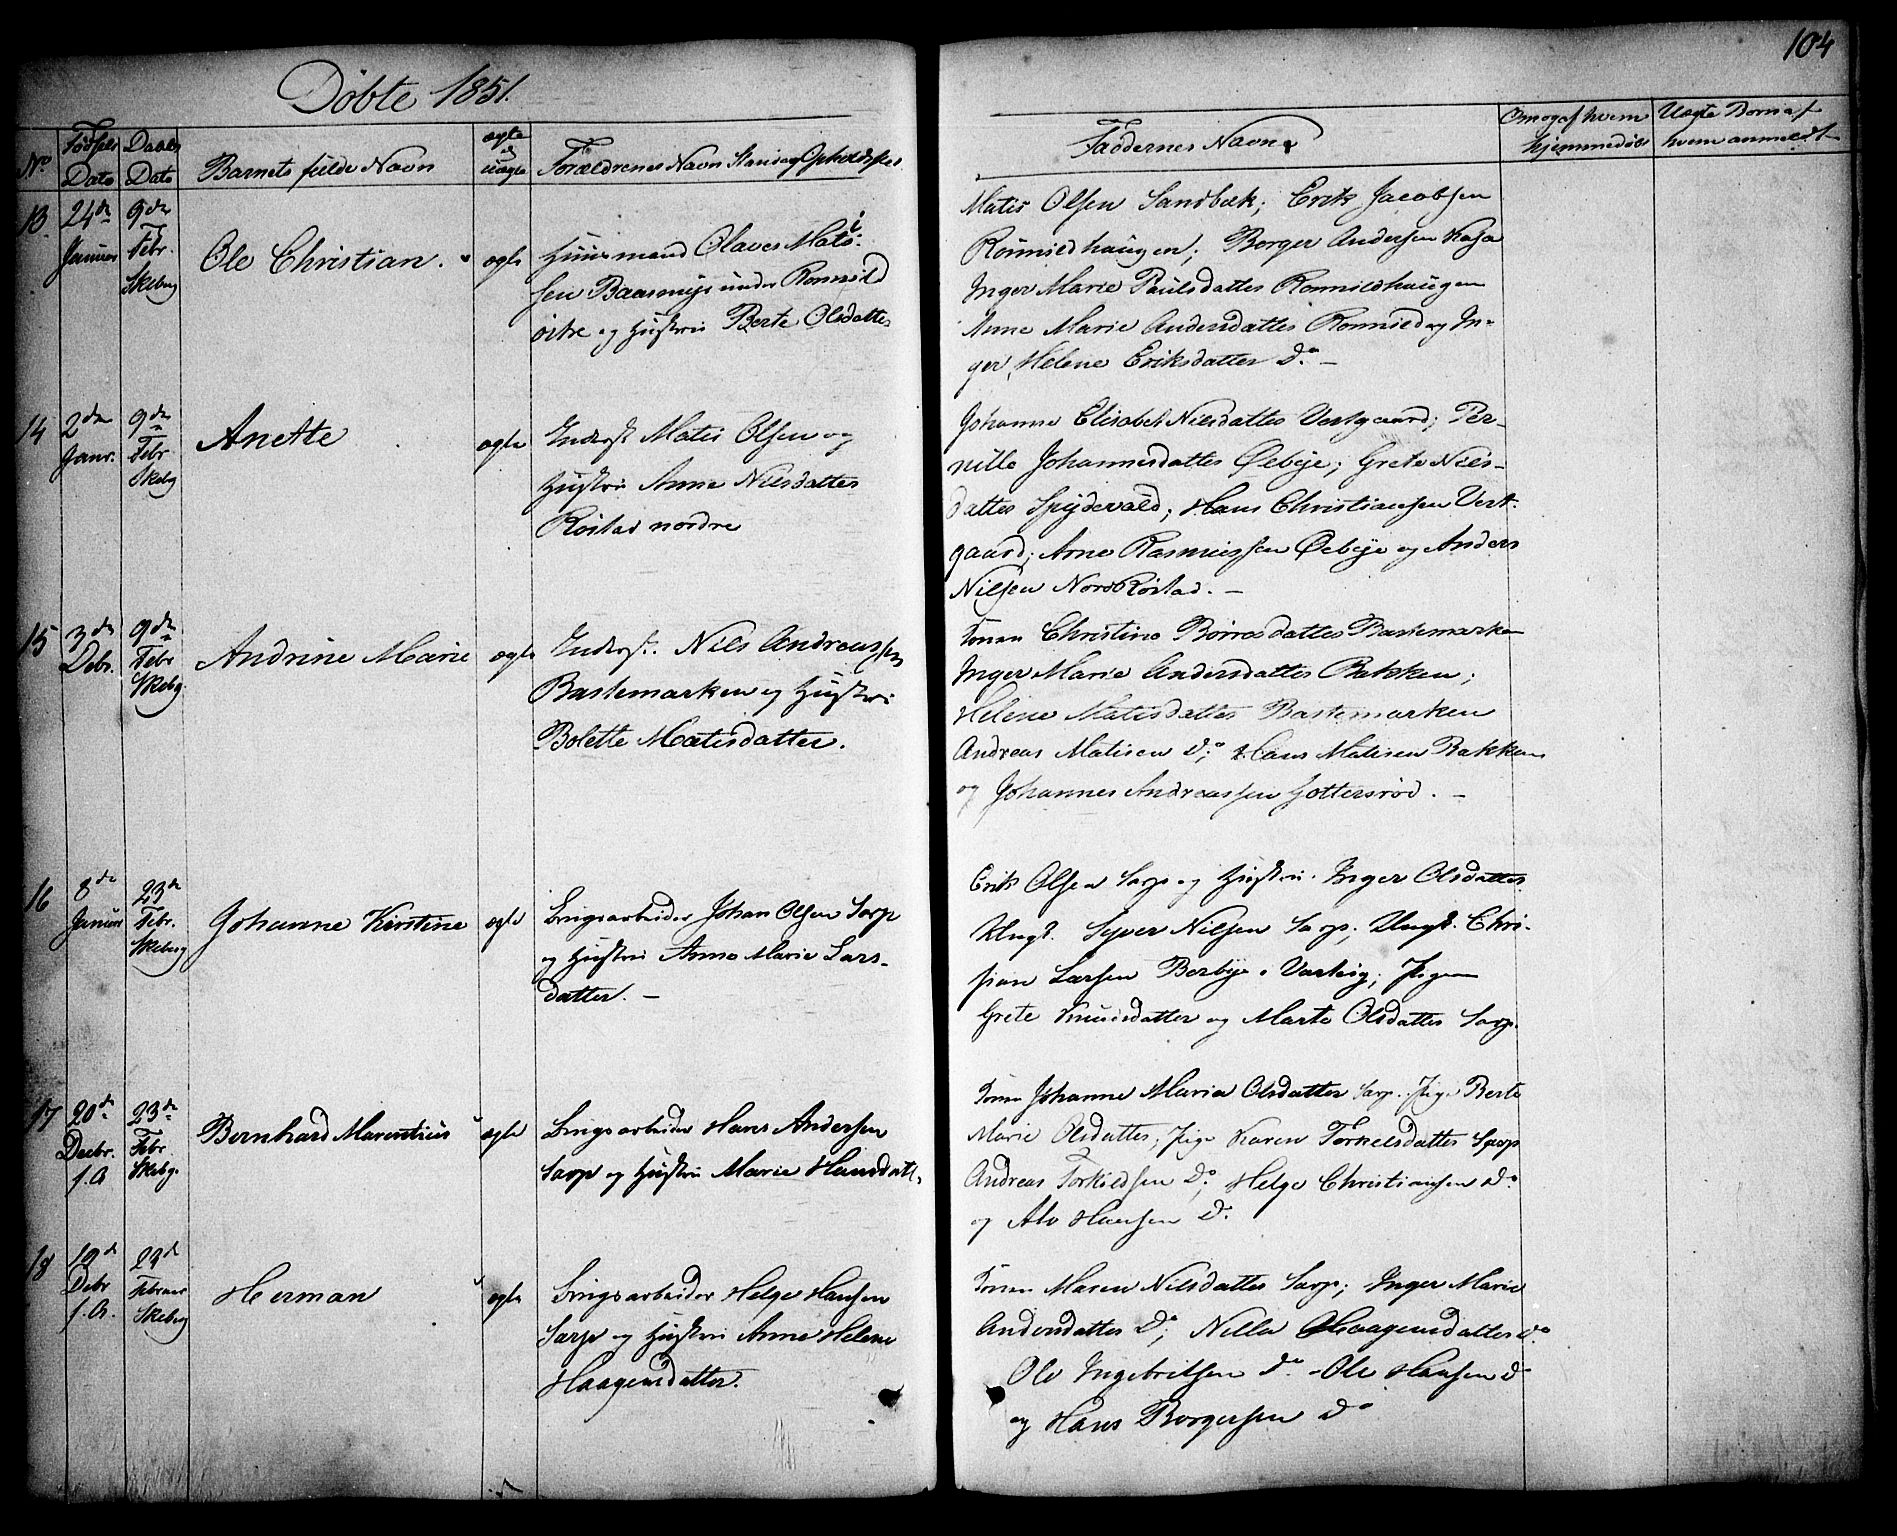 104
Döbte 1851.
No
Födsels Dato
Daabs Dato
Barnets fulde Navn
ægte el uægte
Forældrenes Navn Stand og Opholdssted
Faddernes Navne
Om og af hvem hjemmedöbt
Uægte Börn af hvem anmeldt
13
24de
Januar
9de
Febr.
Skeberg
Ole Christian.
ægte
Huusmand Olaves Matis-
sen Baasmyr under Romsild
östre og Hustru Berte Olsdatter
Matis Olsen Sandbæk; Erik Jacobsen
Romsildhaugen; Borger Andersen Kasa
Inger Marie Paulsdatter Romsildhaugen
Anne Marie Andersdatter Romsild og In-
ger Helene Eriksdatter Do. –
14
2den
Janr.
9de
Febr
Skebg
Anette
ægte
Inderst Matis Olsen og
Hustru Anne Nilsdatter
Röstad nordre
Johanne Elisabet Nielsdatter Vestgaard; Per-
nille Johannesdatter Öebye; Grete Niels-
datter Spydevold; Hans Christiansen Vest-
gaard; Arne Rasmussen Öebye og Anders
Nilsen Nord Röstad. –
15
3de
Debr.
9de
Febr
Skebg.
Andrine Marie
ægte
Inderst. Nils Andreassen
Bastemarken og Hustru
Bolette Matisdatter.
Konen Christine Börresdatter Bastemarken
Inger Marie Andersdatter Bakken;
Helene Matisdatter Bastemarken
Andreas Matisen Do; Hans Matisen Bakken
og Johannes Andreassen Gottersröd. –
16
8de
Januar
23de
Febr.
Skeberg
Johanne Kirstine
ægte
Brugsarbeider Johan Olsen Sarp
og Hustru Anne Marie Lars-
datter. –
Erik Olsen Sarp og Hustru Inger Olsdatter
Ungk. Syver Nilsen Sarp; Ungk. Chri-
stian Larsen Berbye i Varteig; Pigen
Grete Knudsdatter og Marte Olsdatter Sarp.
17
20de
Decbr.
f. A
23de
Febr
Skebg.
Bernhard Marentius
ægte
Brugsarbeider Hans Andersen
Sarp og Hustru Marie Hansdatt.
Konen Johanne Maria Olsdatter Sarp. Pige Berte
Marie Olsdatter; Pige Karen Torkelsdatter Sarp
Andreas Torkildsen Do; Helge Christiansen Do
og Alv Hansen Do.
18
19d
Debr
f. A.
23d
Februar
Skeberg
Herman
ægte
Brugsarbeider Helge Hansen
Sarp og Hustru Anne Helene
Haagensdatter.
Konen Maren Nilsdatter Sarp; Inger Marie
Andersdatter Do; Nella Haagensdatter Do
Ole Ingebritsen Do – Ole Hansen Do
og Hans Borgersen Do